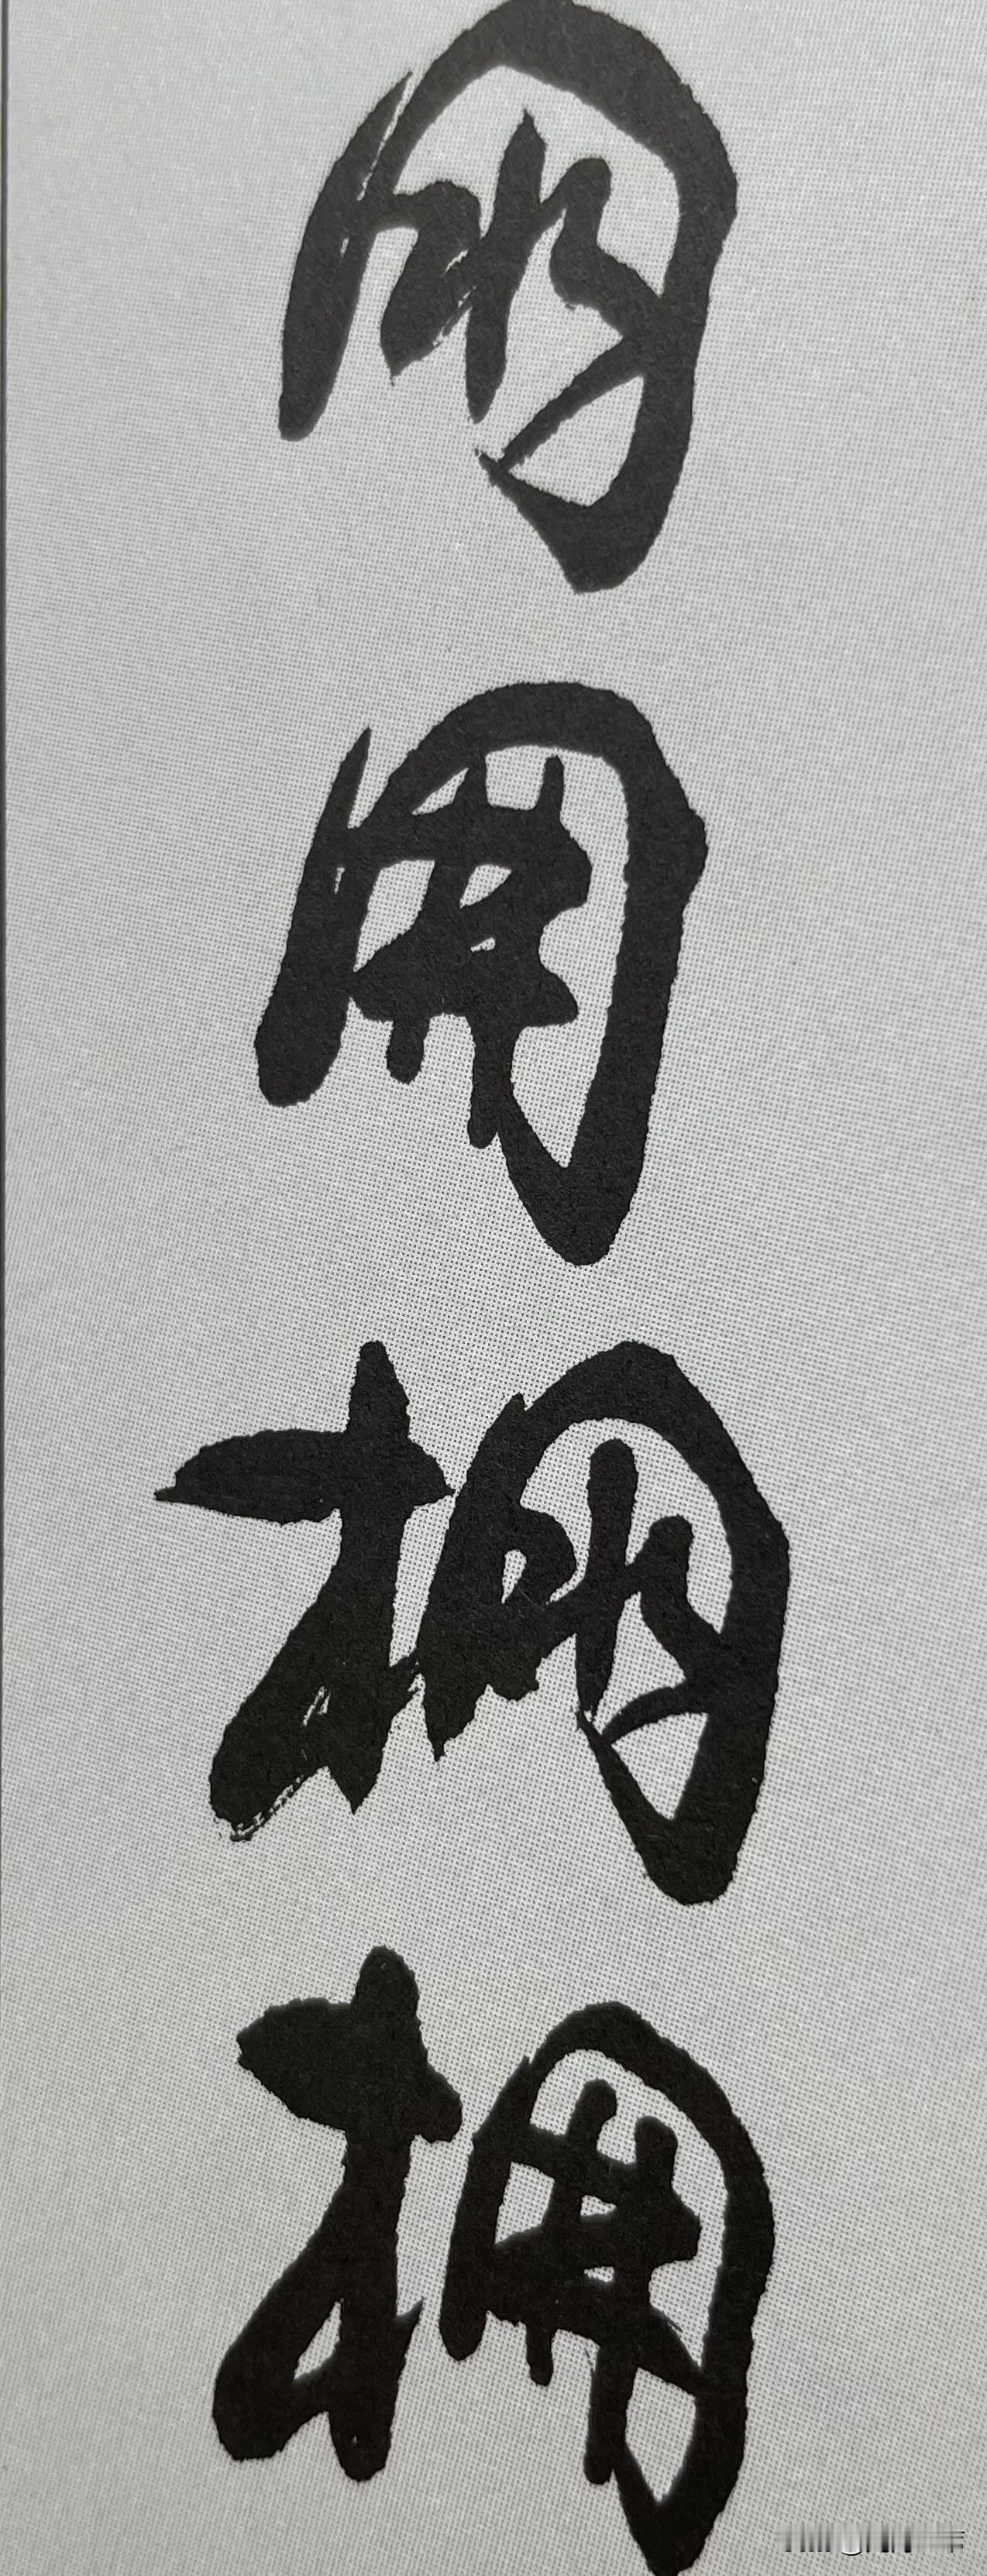 朋
朋
棚
棚